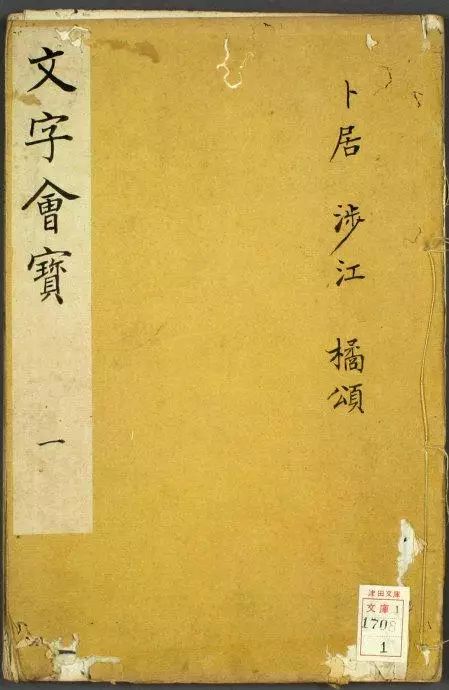 文字會寳
一
卜居 涉江 橘頌
津田文庫
文庫 1
1709
1